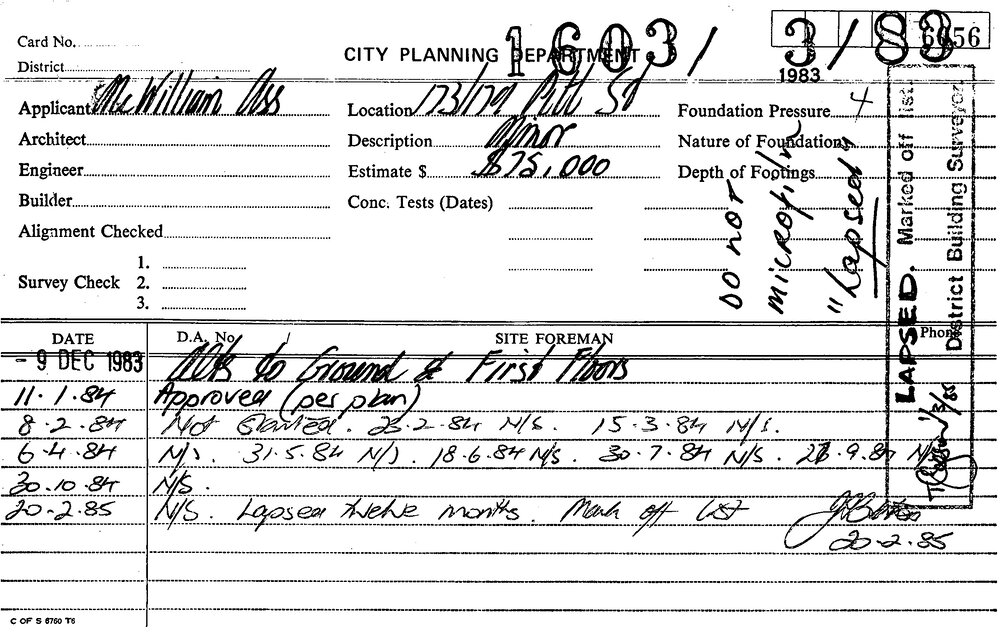 Card No.
CITY PLANNING DEPARTMENT
1603/
3/83
6656
District
1983
Applicant McWilliam Ass
Location 173/179 Pitt St
Foundation Pressure 4
Architect
Description Minor
Nature of Foundations
Engineer
Estimate $ $75,000
Depth of Footings
Builder
Conc. Tests (Dates)
Alignment Checked
Survey Check
1.
2.
3.
DO NOT
microfilm
"Lapsed"
LAPSED. Marked off list.
District Building Surveyor.
1/3/85
DATE
D.A. No.
SITE FOREMAN
Phone
- 9 DEC 1983 Alts to Ground & First Floors
11.1.84 Approved (per plan)
8.2.84 Not Started. 23.2.84 N/S. 15.3.84 N/S.
6.4.84 N/S. 31.5.84 N/S. 18.6.84 N/S. 30.7.84 N/S. 9.84 N/S
30.10.84 N/S.
20.2.85 N/S. Lapsed twelve months. Mark off list
20.2.85
C OF S 6760 T6